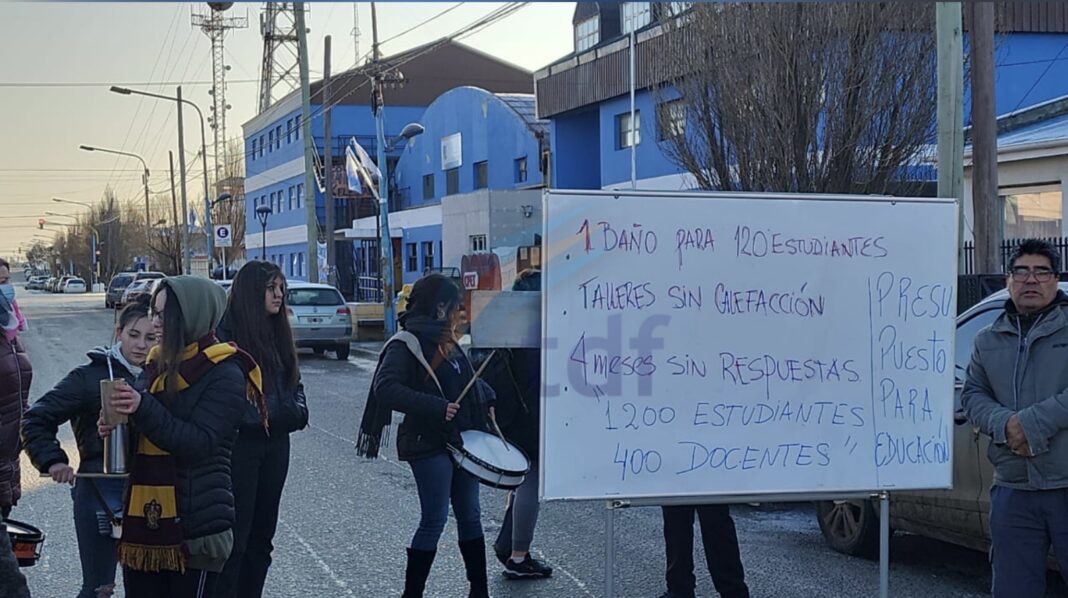 1 BAÑO PARA 120 ESTUDIANTES
TALLERES SIN CALEFACCIÓN
4 MESES SIN RESPUESTAS
"1200 ESTUDIANTES
400 DOCENTES"
PRESU
PUESTO
PARA
EDUCACIÓN
tdf
E